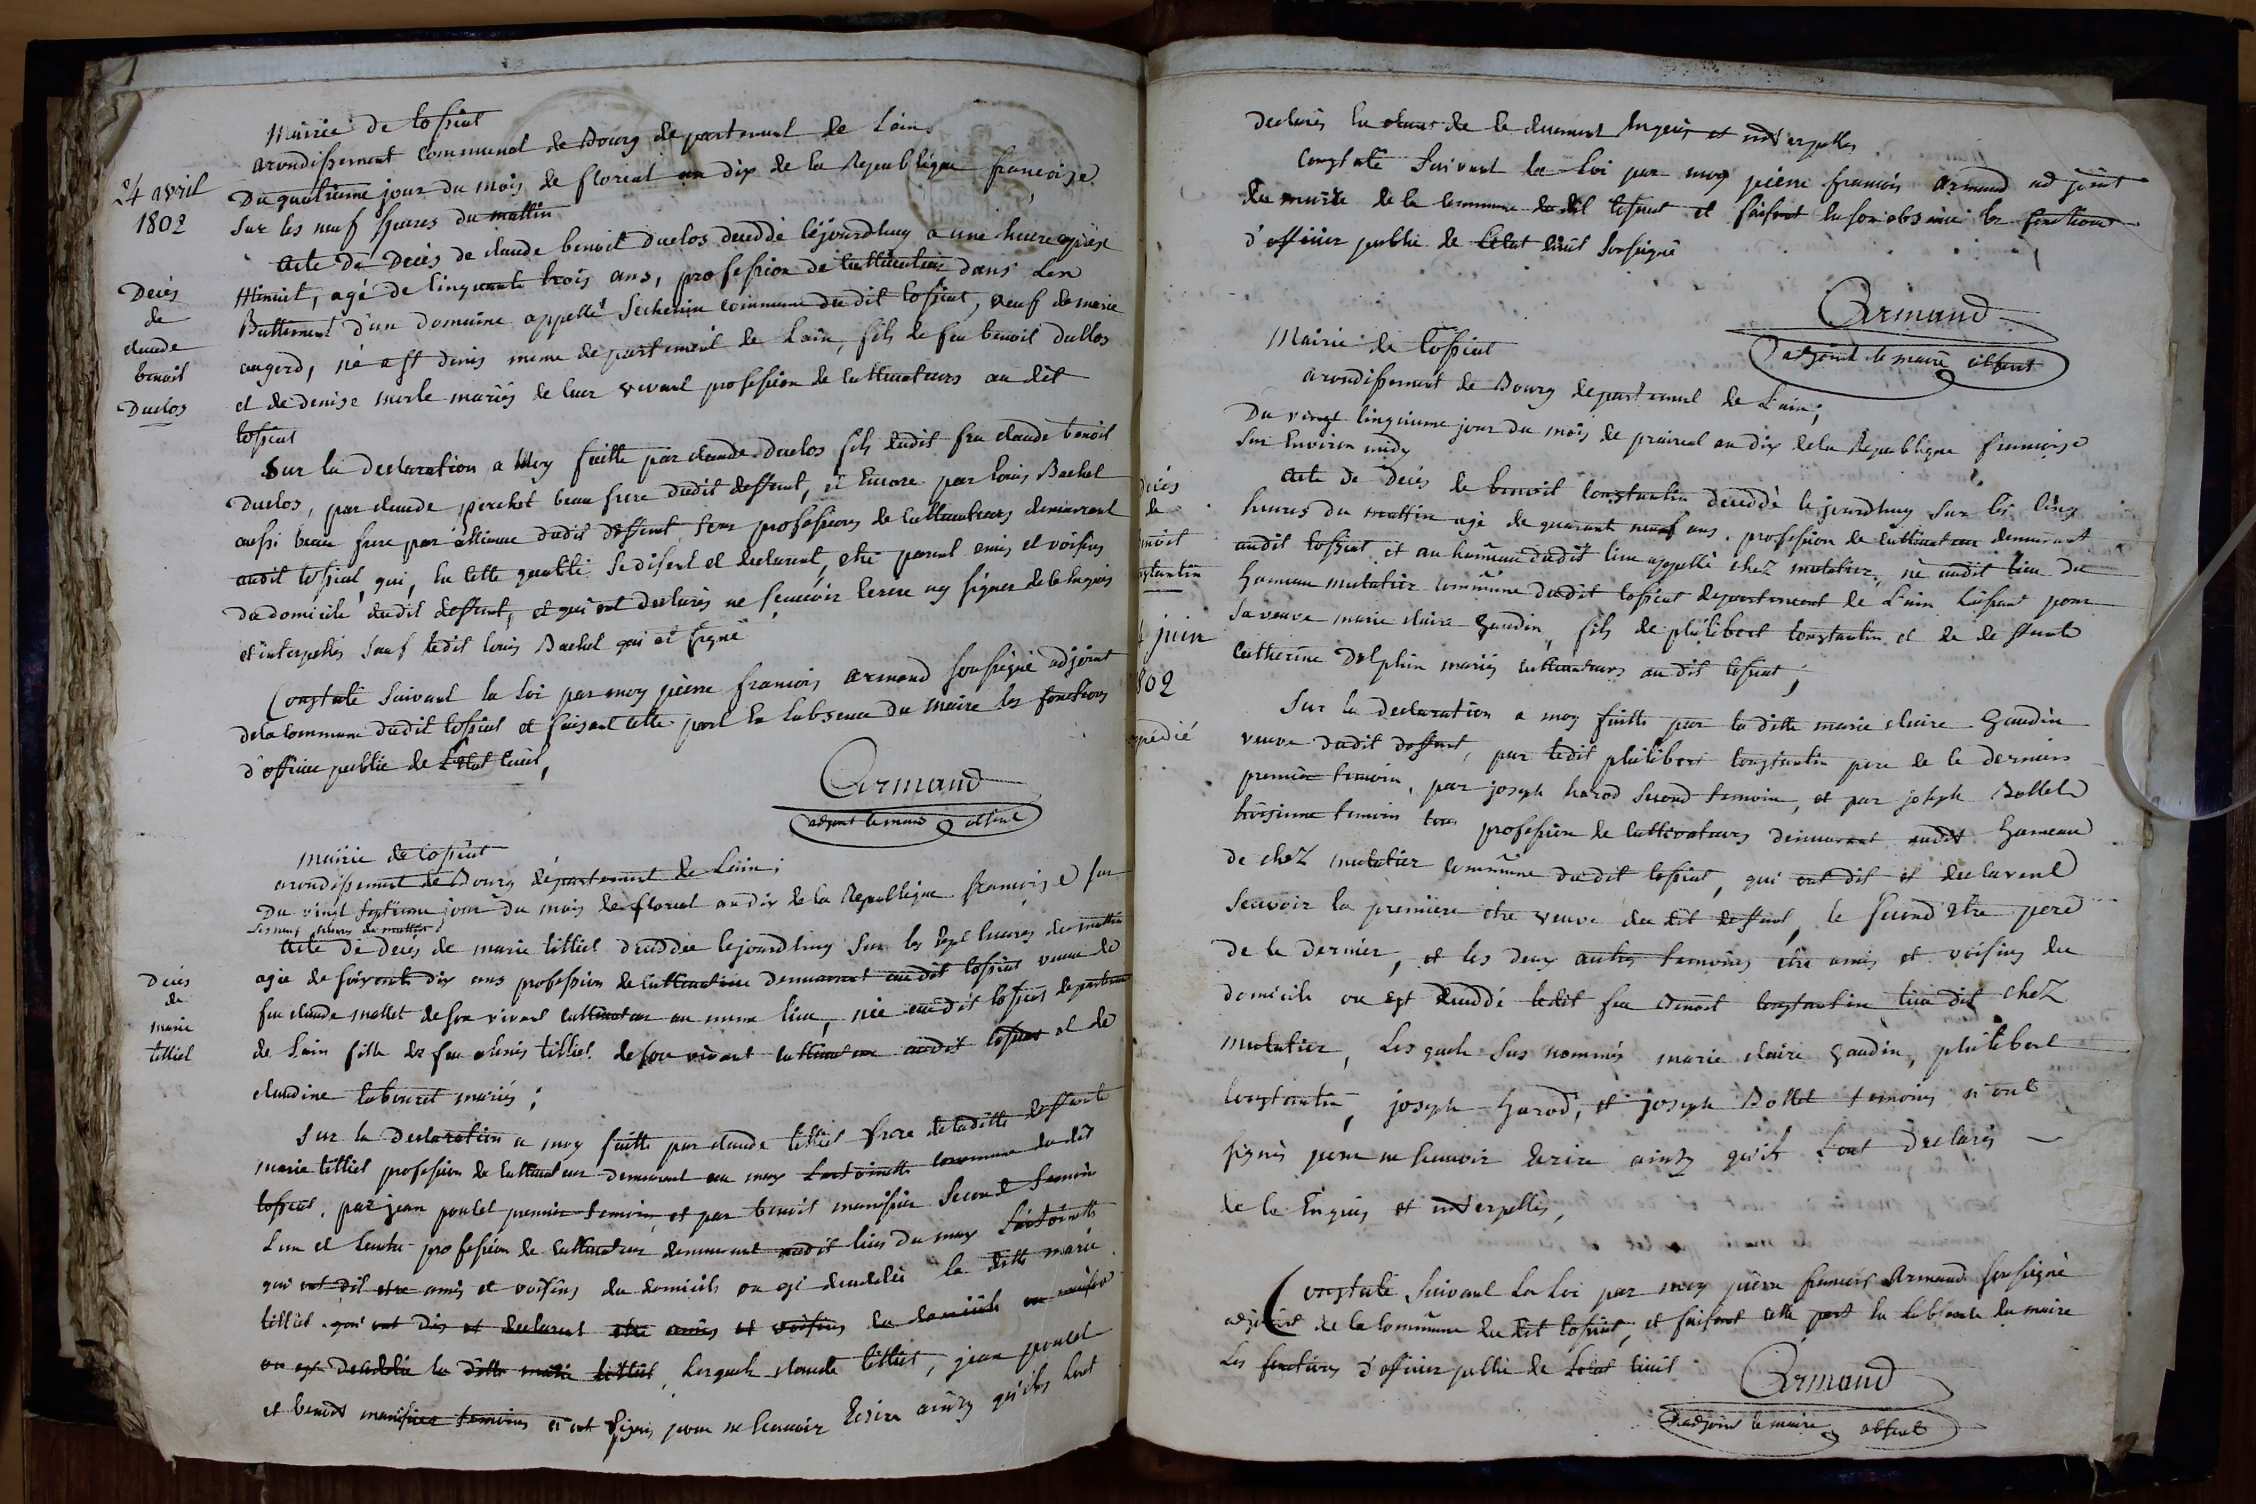 Mairie de Cossiat
arondissement communal de Bourg departement de Lain
24 avril
1802
Du quatrieme jour du mois de floreal an dix de la Republique françoise
sur les neuf heures du mattin
Acte de Décès de claude benoit duclos deceddé cejourdhuy a une heure après
Décès
de
claude
benoit
Duclos
Minuit, agé de cinquante trois ans, profession de cultivateur dans
Battiment d'un domaine appellé commune dudit Cossiat, veuf de marie
augerd, né a St denis meme departement de Lain, fils de feu benoit duclos
et de denise merle mariés de leur vivant profession de cultivateurs au dit
Cossiat
Sur la declaration a Moy faitte par claude duclos fils dudit feu claude benoit
Duclos, par claude perchet beau frere dudit deffunt, et Encore par louis Bachel
aussi beau frere par alliance dudit deffunt, tous professions de cultivateurs demeurant
audit Cossiat, qui, En cette qualité se disent et declarent, etre parent amis et voisins
du domicile dudit deffunt, et qui ont declarés ne scavoir Ecrire ny signer de ce Enquis
et interpellés sauf ledit louis Bachel qui a signé
Constaté suivant la Loi par moy pierre francois armand soussigné adjoint
de la Commune dudit Cossiat et faisant cette part En labsence du Maire les fonctions
d'officier public de L'Etat Civil,
Armand
adjoint le maire absent
Mairie de Cossiat
arondissement de Bourg département de Lain;
Du vingt septieme jour du mois de floreal an dix de la Republique françoise sur
Les neuf heures du mattin
Acte de decès de marie tilliet deceddée cejourdhuy Sur les sept heures du mattin
Décès
de
marie
tilliet
agée de soixante dix ans profession de cultivatrice demeurant audit Cossiat veuve de
feu claude mollet de son vivant cultivateur au meme lieu, née audit Cossiat departement
de Lain fille de feu denis tilliet de son vivant cultivateur audit Cossiat et de
claudine labouret mariés;
Sur la declaration a moy faitte par claude tilliet frere de laditte deffunte
Marie tilliet profession de cultivateur demeurant au may commune dudit
Cossiat, par jean poulet premier temoin, et par benoit manissier second temoin
Lun et Lautre profession de cultivateur demeurant audit lieu du may
qui ont dit etre amis et voisins du domicile ou est deceddée la ditte marie
tilliet. qui ont dis et declarent etre amis et voisins du domicile
ou est deceddée la ditte marie tilliet, Lesquels claude tilliet, jean poulet
et benoit manissier temoins n'ont signés pour ne scavoir Ecrire ainsy qu'ils Lont
declarés En de ce duement Enquis et interpellés
Constaté Suivant la Loi par moy pierre francois armand adjoint
du maire de la Commune du dit Cossiat et faisant En son absence les fonctions
d'officier public de L'Etat Civil soussigné
Armand
adjoint le maire absent
Mairie de Cossiat
arondissement de Bourg departement de Lain;
Du vingt cinquieme jour du mois de prairial an dix de la Republique françoise
Sur Environ midy
Acte de Décès de benoit Constantin deceddé cejourdhuy sur les cinq
Décès
de
heures du mattin agé de quarante neuf ans. profession de cultivateur demeurant
audit Cossiat, et au hameau dudit lieu appellé chez mutatier, né audit lieu du
hameau mutatier Commune dudit Cossiat departement de Lain laissant pour
juin
1802
sa veuve marie claire Gaudin, fils de philibert Constantin et de deffunte
Catherine Delphin mariés cultivateurs audit Cossiat;
Sur la declaration a moy faitte par la ditte marie claire Gaudin
expédié
veuve dudit deffunt, par ledit philibert Constantin pere de ce dernier
premier temoin, par joseph harod second temoin, et par joseph Bollet
troisieme temoin tous profession de cultivateurs demeurant audit hameau
de chez mutatier commune dudit Cossiat, qui ont dit et declarent
Scavoir la premiere etre veuve du dit deffunt, le second etre pere
de ce dernier, et les deux autres temoins etre amis et voisins du
domicile ou est deceddé ledit feu benoit Constantin lieu dit chez
mutatier, Lesquels sus nommés marie claire Gaudin, philibert
Constantin, joseph harod, et joseph Bollet temoins n'ont
signés pour ne scavoir Ecrire ainsy qu'ils Lont declarés
de ce Enquis et interpellés,
Constaté Suivant La Loi par moy pierre francois Armand soussigné
adjoint de la Commune du dit Cossiat, et faisant cette part En Labsence du maire
Les fonctions d'officier public de Letat Civil
Armand
adjoint le maire absent